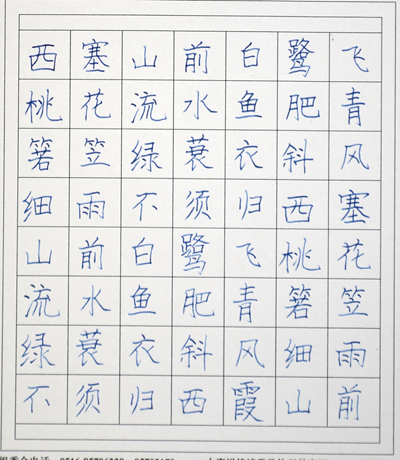 西塞山前白鹭飞
桃花流水鱼肥青
箬笠绿蓑衣斜风
细雨不须归西塞
山前白鹭飞桃花
流水鱼肥青箬笠
绿蓑衣斜风细雨
不须归西霞山前